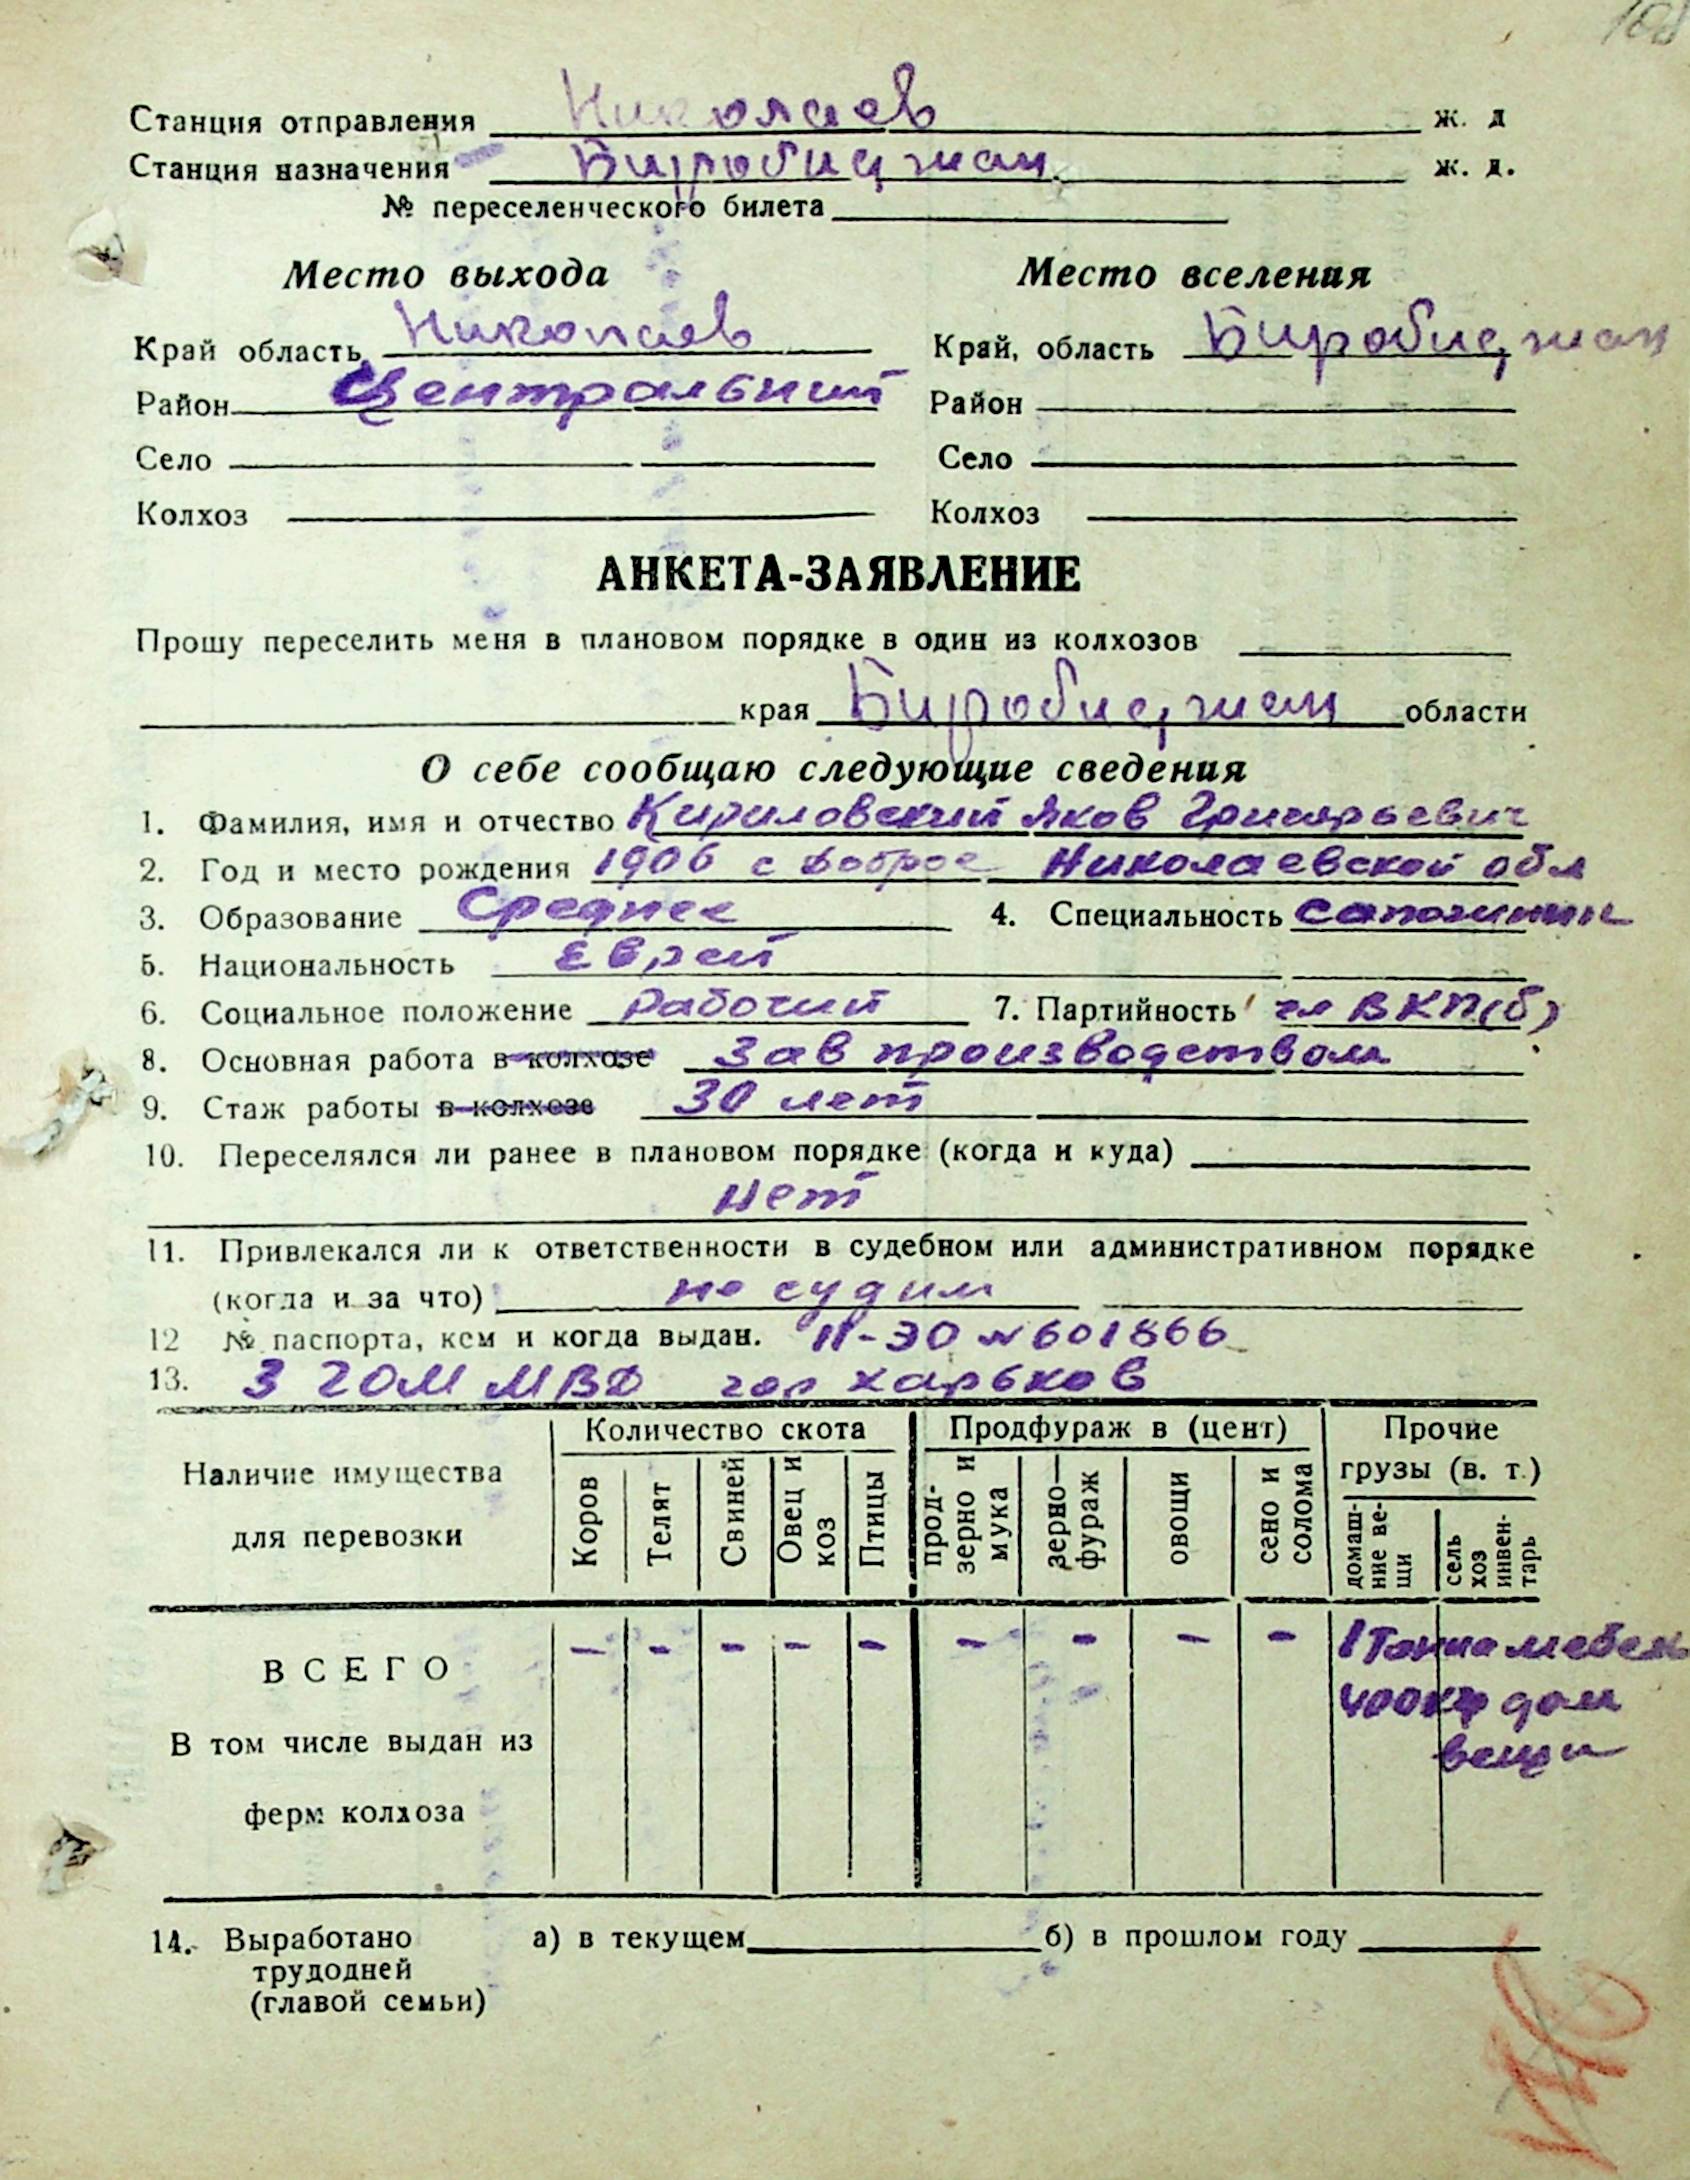 Станция отправления Николаев ж. д
Станция назначения Биробиджан ж. д.
№ переселенческого билета
Место выхода Место вселения
Край область, Николаев Край, область Биробиджан
Район Центральний Район
Село Село
Колхоз Колхоз
АНКЕТА-ЗАЯВЛЕНИЕ
Прошу переселить меня в плановом порядке в один из колхозов
края Биробиджан области
О себе сообщаю следующие сведения
1. Фамилия, имя и отчество Кириловский Яков Григорьевич
2. Год и место рождения 1906 с Доброе Николаевской обл
3. Образование Среднее 4. Специальность сапожник
5. Национальность Еврей
6. Социальное положение Рабочий 7. Партийность чл ВКП(б)
8. Основная работа в колхозе Зав производством
9. Стаж работы в колхозе 30 лет
10. Переселялся ли ранее в плановом порядке (когда и куда)
нет
11. Привлекался ли к ответственности в судебном или административном порядке
(когда и за что) не судим
12 № паспорта, кем и когда выдан. II-ЭО № 601866
13. 3 ГОМ МВД гор Харьков
Наличие имущества для перевозки
Количество скота Продфураж в (цент) Прочие грузы (в. т.)
Коров Телят Свиней Овец и коз Птицы прод-зерно и мука зерно-фураж овощи сено и солома домаш-ние ве-щи сель хоз инвен-тарь
ВСЕГО - - - - - - - - - 1 Тонна мебель
400 кг дом
вещи
В том числе выдан из
ферм колхоза
14. Выработано а) в текущем б) в прошлом году
трудодней
(главой семьи)